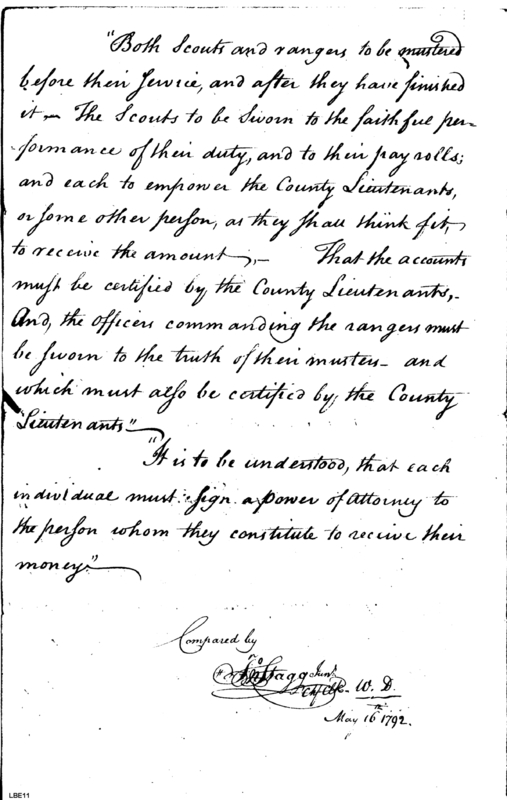 "Both Scouts and rangers to be mustered
before their service, and after they have finished
it — The Scouts to be Sworn to the faithful per-
formance of their duty, and to their pay rolls;
and each to empower the County Lieutenants,
or some other person, as they shall think fit,
to receive the amount,— That the accounts
must be certified by the County Lieutenants,—
And, the officers commanding the rangers must
be sworn to the truth of their musters — and
which must also be certified by the County
Lieutenants"—
"It is to be understood, that each
individual must sign a power of attorney to
the person whom they constitute to receive their
money"—
Compared by
Jno Stagg Junr
Chf Clk — W. D.
May 16th 1792.
LBE11